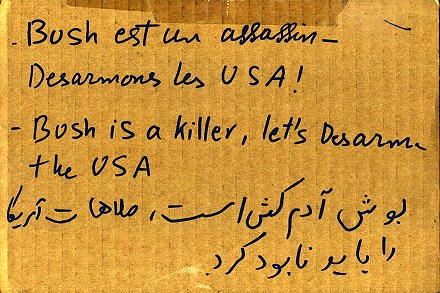 - Bush est un assassin -
Desarmons les USA!
- Bush is a killer, let's Desarm
the USA
بوش آدم کش است، صلاهات آمریکا
را باید نابود کرد.